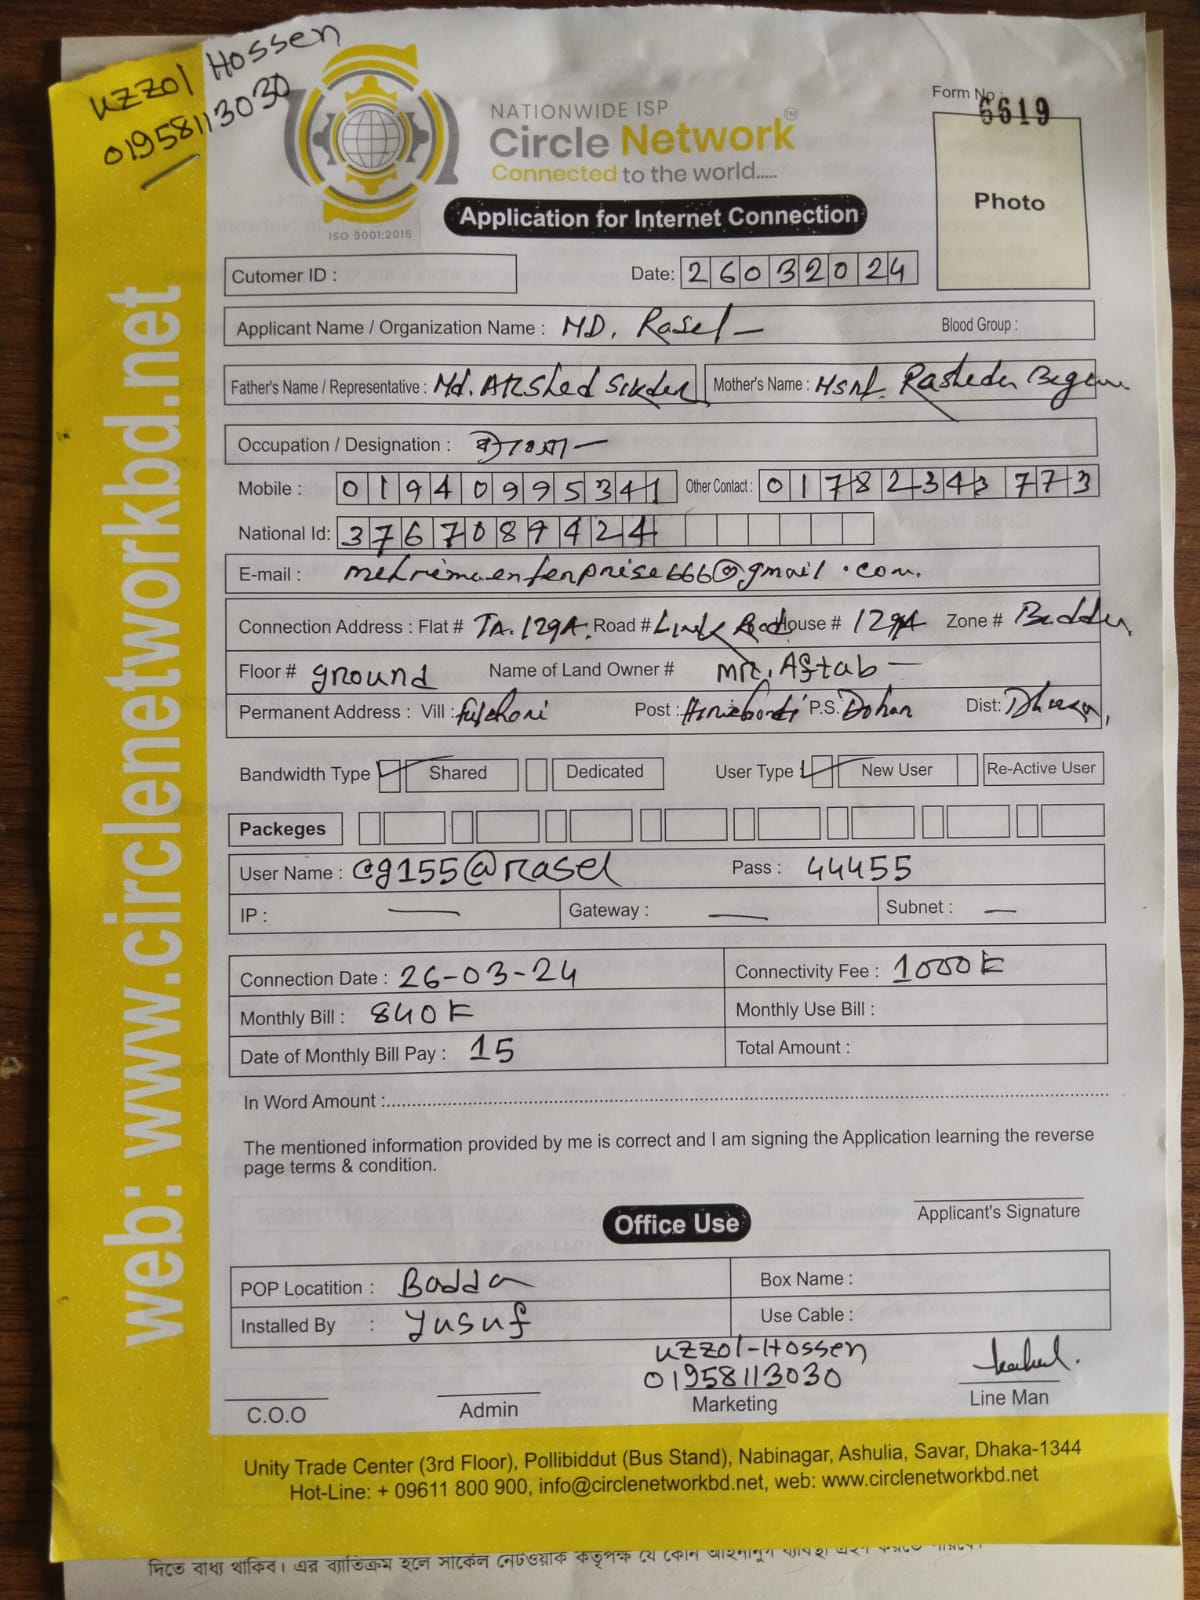 Uzzol Hossen
01958113030
NATIONWIDE ISP
Circle Network™
Connected to the world.....
ISO 9001:2015
Form No : 6619
Photo
Application for Internet Connection
Cutomer ID :
Date: 26032024
Applicant Name / Organization Name : MD. Rasel
Blood Group :
Father's Name / Representative : Md. Arshed Sikder
Mother's Name : Rasheda Begum
Occupation / Designation :
Mobile : 01940995341 Other Contact : 01782343773
National Id: 3767089424
E-mail : mehrimaenterprise666@gmail.com.
Connection Address : Flat # TA.129A, Road # Link Road House # 129A Zone # Badda,
Floor # ground Name of Land Owner # MR. Aftab
Permanent Address : Vill : Post : P.S. Dohar Dist: Dhaka,
Bandwidth Type Shared Dedicated User Type New User Re-Active User
Packeges
User Name : cg155@rasel Pass : 44455
IP : — Gateway : — Subnet : —
Connection Date : 26-03-24 Connectivity Fee : 1000
Monthly Bill : 840 Monthly Use Bill :
Date of Monthly Bill Pay : 15 Total Amount :
In Word Amount :
The mentioned information provided by me is correct and I am signing the Application learning the reverse
page terms & condition.
Applicant's Signature
Office Use
POP Locatition : Badda Box Name :
Installed By : Yusuf Use Cable :
Uzzol-Hossen
01958113030
C.O.O Admin Marketing Line Man
Unity Trade Center (3rd Floor), Pollibiddut (Bus Stand), Nabinagar, Ashulia, Savar, Dhaka-1344
Hot-Line: + 09611 800 900, info@circlenetworkbd.net, web: www.circlenetworkbd.net
web: www.circlenetworkbd.net
দিতে বাধ্য থাকিব। এর ব্যতিক্রম হলে সার্কেল নেটওয়ার্ক কতৃপক্ষ যে কোন